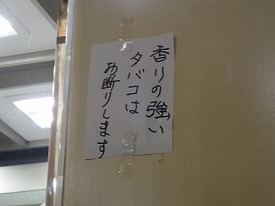 香りの強い
タバコは
お断りします